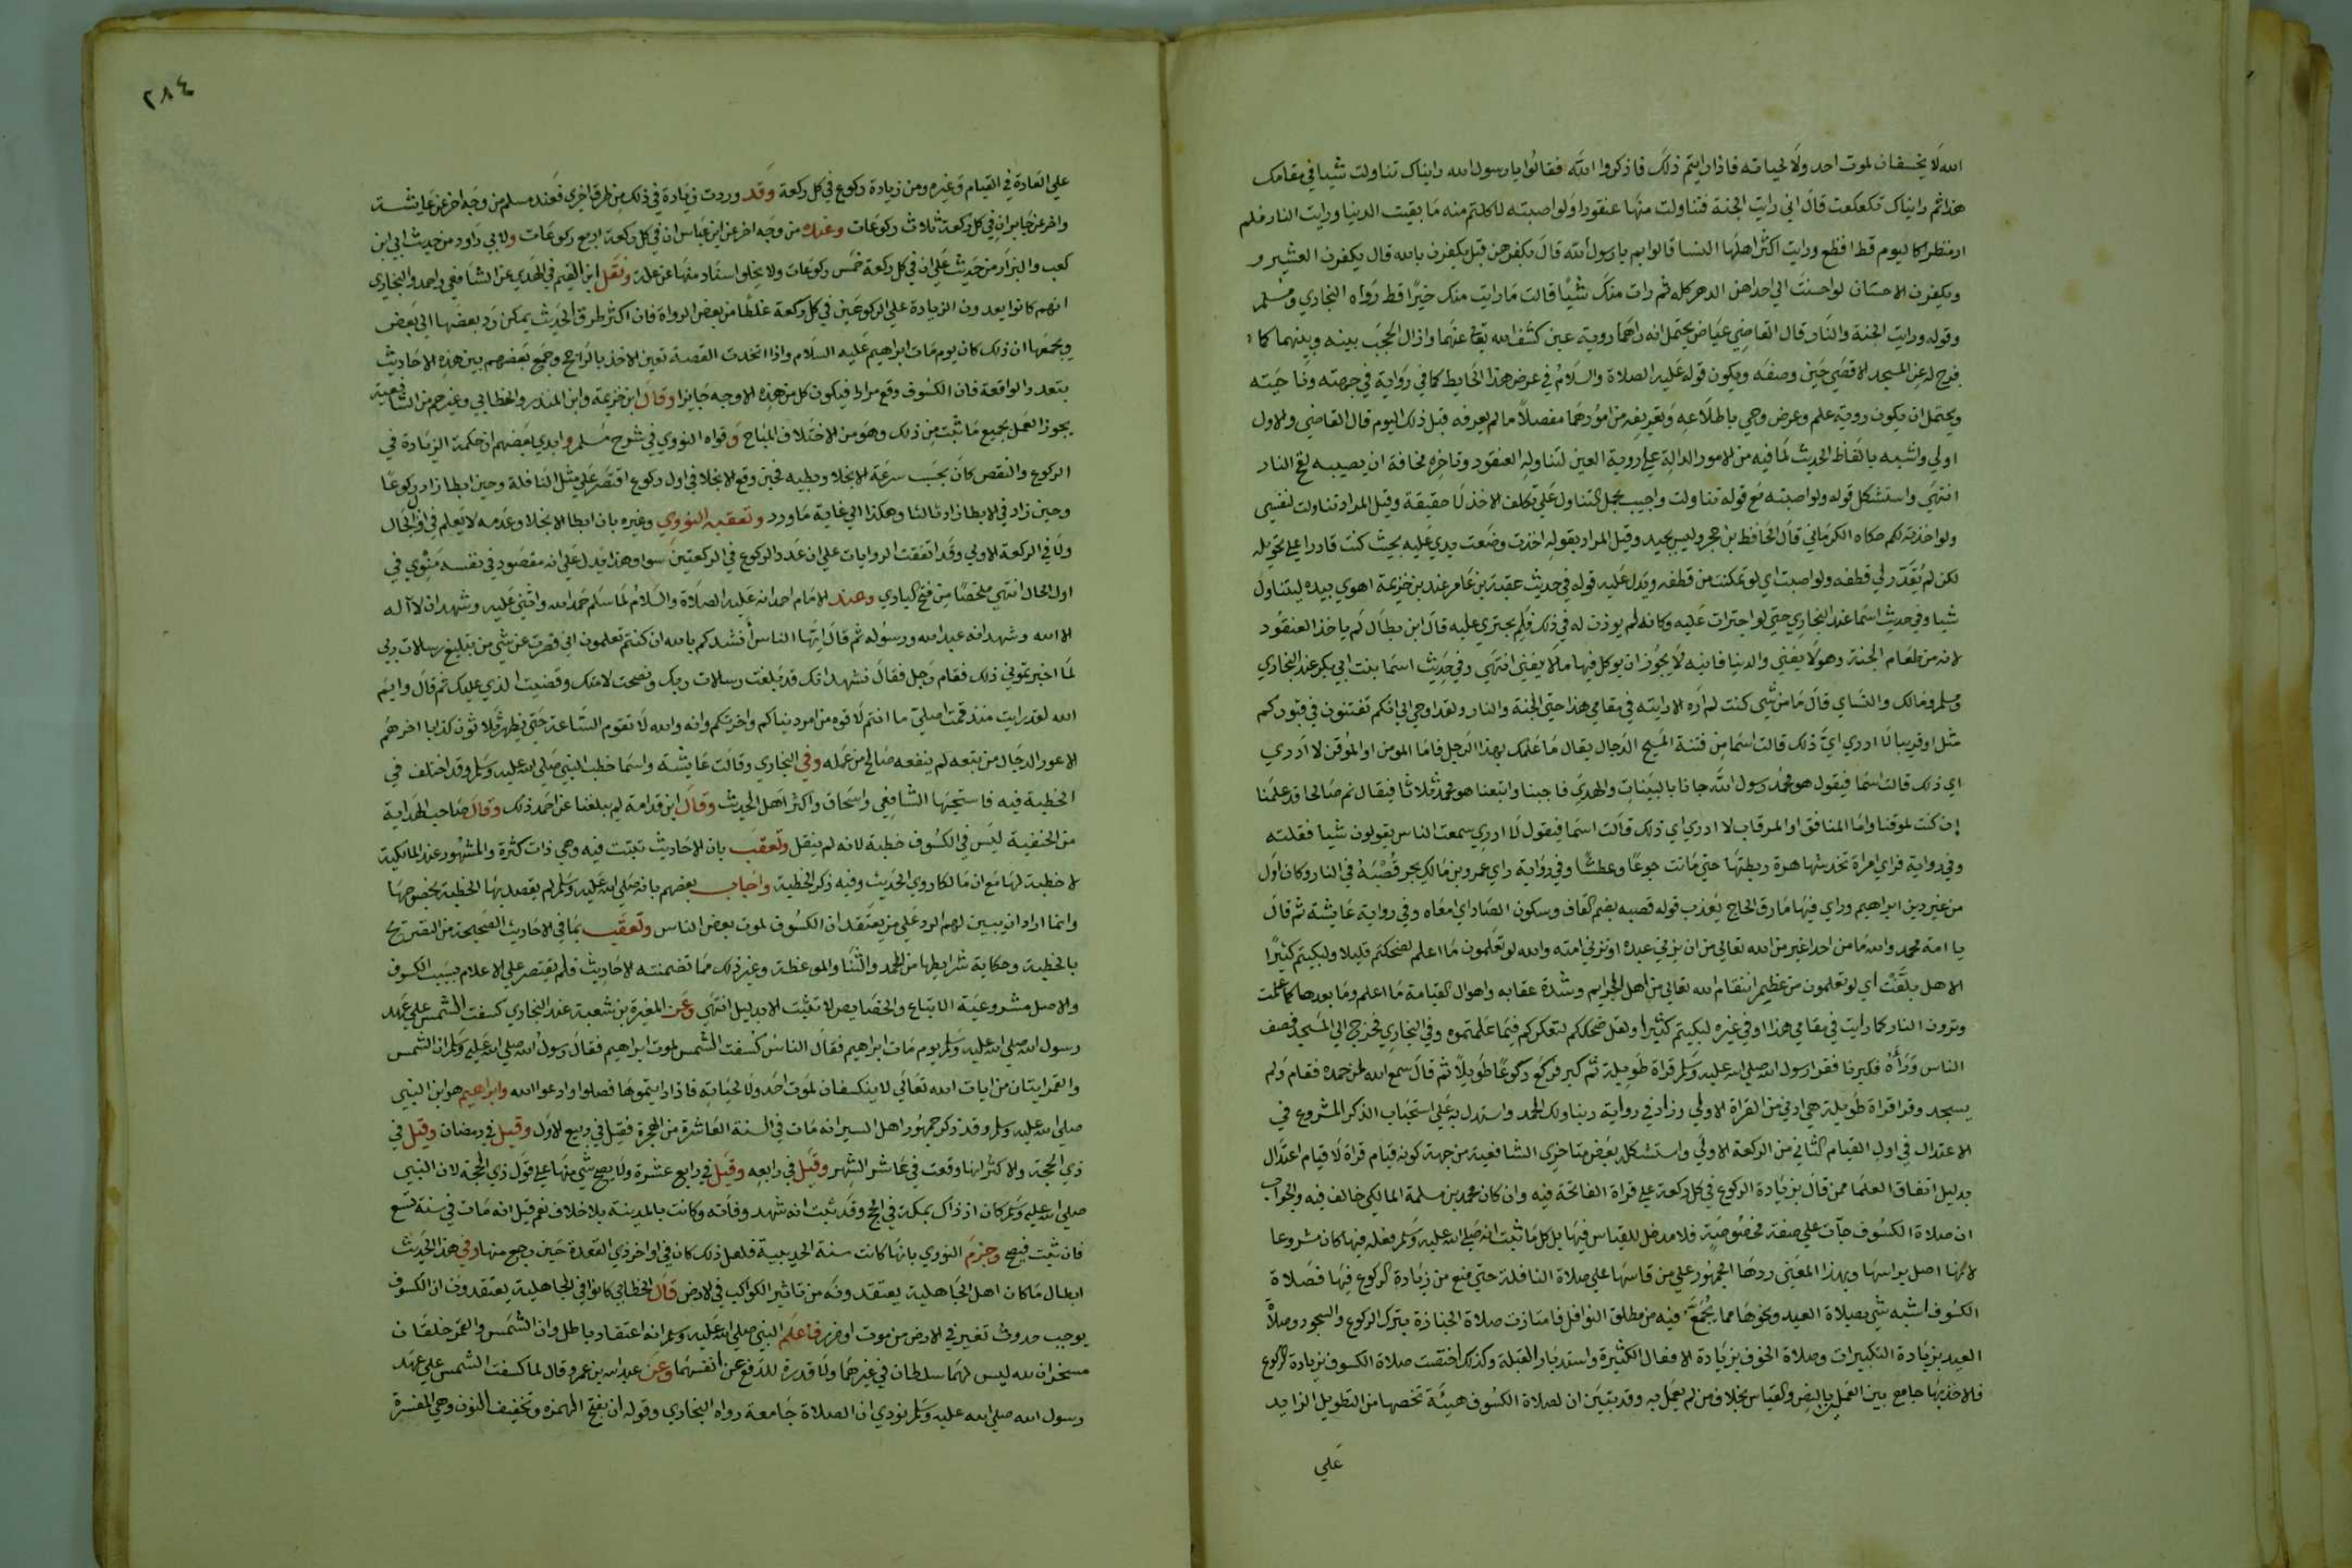 الله لا يخسفان لموت احد ولا لحياته فاذا رايتم ذلك فاذكروا الله فقالوا يا رسول الله رايناك تناولت شيا في مقامك
هذا ثم رايناك تكعكعت قال اني رايت الجنة فتناولت منها عنقودا ولو اصبته لاكلتم منه ما بقيت الدنيا ورايت النار فلم
ار منظرا كاليوم قط افظع ورايت اكثر اهلها النسا قالوا بم يا رسول الله قال بكفرهن قيل يكفرن بالله قال يكفرن العشير
ويكفرن الاحسان لو احسنت الي احداهن الدهر كله ثم رات منك شيئا قالت ما رايت منك خيرا قط رواه البخاري ومسلم
وقوله ورايت الجنة والنار قال القاضي عياض يحتمل انه راهما روية عين كشف الله تعالي عنهما وازال الحجب بينه وبينهما كما
فرج له عن المسجد الاقصي حين وصفه ويكون قوله عليه الصلاة والسلام في عرض هذا الحايط كما في رواية في جهته وناحيته
ويحتمل ان يكون روية علم وعرض وحي باطلاعه وتعريفه من امورهما مفصلا ما لم يعرفه قبل ذلك اليوم قال القاضي والاول
اولي واشبه بالفاظ الحديث لما فيه من الامور الدالة علي روية العين لتناوله العنقود وتاخره مخافة ان يصيبه لفح النار
انتهي واستشكل قوله ولو اصبته مع قوله تناولت واجيب بحمل التناول علي تكلف الاخذ لا حقيقة وقيل المراد تناولت لنفسي
ولو اخذته لكم حكاه الكرماني قال الحافظ بن حجر وليس بجيد وقيل المراد بقوله اخذت وضعت يدي عليه بحيث كنت قادرا علي تحويله
لكن لم يقدر لي قطفه ولو اصبت اي لو تمكنت من قطفه ويدل عليه قوله في حديث عقبة بن عامر عند بن خزيمة اهوي بيده ليتناول
شيا وفي حديث اسما عند البخاري حتي لو اجترات عليه وكانه لم يوذن له في ذلك فلم يجتري عليه قال ابن بطال لم ياخذ العنقود
لانه من طعام الجنة وهو لا يفني والدنيا فانية لا يجوز ان يوكل فيها ما لا يفني انتهي وفي حديث اسما بنت ابي بكر عند البخاري
ومسلم ومالك والنساي قال ما من شي كنت لم اره الا رايته في مقامي هذا حتي الجنة والنار ولقد اوحي الي انكم تفتنون في قبوركم
مثل او قريبا لا ادري اي ذلك قالت اسما من فتنة المسيح الدجال يقال ما علمك بهذا الرجل فاما المومن او الموقن لا ادري
اي ذلك قالت اسما فيقول هو محمد رسول الله جانا بالبينات والهدي فاجبنا واتبعنا هو محمد ثلاثا فيقال نم صالحا قد علمنا
إن كنت لموقنا واما المنافق او المرتاب لا ادري اي ذلك قالت اسما فيقول لا ادري سمعت الناس يقولون شيا فقلته
وفي رواية فراي امراة تخدشها هرة ربطتها حتي ماتت جوعا وعطشا وفي رواية راي عمرو بن مالك يجر قصبه في النار وكان اول
من غير دين ابراهيم وراي فيها سارق الحاج يعذب قوله قصبه بضم القاف وسكون الصاد اي امعاه وفي رواية عايشة ثم قال
يا امة محمد والله ما من احد اغير من الله تعالي من ان يزني عبده او تزني امته والله لو تعلمون ما اعلم لضحكتم قليلا ولبكيتم كثيرا
الا هل بلغت اي لو تعلمون من عظيم انتقام الله تعالي من اهل الجرايم وشدة عقابه واهوال القيامة ما اعلم وما بعدها كما علمت
وترون النار كما رايت في مقامي هذا وفي غيره لبكيتم كثيرا ولقل ضحككم لتفكركم فيما علمتموه وفي البخاري فخرج الي المسجد فصف
الناس وراه فكبر فقرا رسول الله صلي الله عليه وسلم قراة طويلة ثم كبر فركع ركوعا طويلا ثم قال سمع الله لمن حمده فقام ولم
يسجد وقرا قراة طويلة هي ادني من القراة الاولي وزاد في رواية ربنا ولك الحمد واستدل به علي استحباب الذكر المشروع في
الاعتدال في اول القيام الثاني من الركعة الاولي واستشكله بعض متاخري الشافعية من جهة كونه قيام قراة لا قيام اعتدال
بدليل اتفاق العلما ممن قال بزيادة الركوع في كل ركعة علي قراة الفاتحة فيه وان كان محمد بن مسلمة المالكي خالف فيه والجواب
ان صلاة الكسوف جآت علي صفة مخصوصة فلا مدخل للقياس فيها بل كل ما ثبت انه صلي الله عليه وسلم فعله فيها كان مشروعا
لانها اصل براسها وبهذا المعني ردها الجمهور علي من قاسها علي صلاة النافلة حتي منع من زيادة الركوع فيها فصلاة
الكسوف اشبه شي بصلاة العيد ونحوها مما يجمع فيه من مطلق النوافل فامتازت صلاة الجنازة بترك الركوع والسجود وصلاة
العيد بزيادة التكبيرات وصلاة الخوف بزيادة الافعال الكثيرة واستدبار القبلة وكذلك اختصت صلاة الكسوف بزيادة الركوع
فالاخذ بها جامع بين العمل بالنص والقياس بخلاف من لم يعمل به وقد تبين ان لصلاة الكسوف هيئة تخصها من التطويل الزايد
علي
٢٨٤
علي العادة في القيام وغيره ومن زيادة ركوع في كل ركعة وقد وردت زيادة في ذلك من طرق اخري فعند مسلم من وجه اخر عن عايشة
واخر عن جابر ان في كل ركعة ثلاث ركوعات وعنده من وجه اخر عن ابن عباس ان في كل ركعة اربع ركوعات ولابي داود من حديث ابي ابن
كعب والبزار من حديث علي ان في كل ركعة خمس ركوعات ولا يخلو اسناد منها عن علة ونقل ابن القيم في الهدي عن الشافعي واحمد والبخاري
انهم كانوا يعدون الزيادة علي الركوعين في كل ركعة غلطا من بعض الرواة فان اكثر طرق الحديث يمكن رد بعضها الي بعض
ويجمعها ان ذلك كان يوم مات ابراهيم عليه السلام واذا اتحدت القصة تعين الاخذ بالراجح وجمع بعضهم بين هذه الاحاديث
بتعدد الواقعة فان الكسوف وقع مرارا فيكون كل من هذه الاوجه جايزا وقال ابن خزيمة وابن المنذر والخطابي وغيرهم من الشافعية
يجوز العمل بجميع ما ثبت من ذلك وهو من الاختلاف المباح وقواه النووي في شرح مسلم وابدي بعضهم ان حكمة الزيادة في
الركوع والنقص كان بحسب سرعة الانجلا وبطيه فحين وقع الانجلا في اول ركوع اقتصر علي مثل النافلة وحين ابطا زاد ركوعا
وحين زاد في الابطا زاد ثالثا وهكذا الي غاية ما ورد وتعقبه النووي وغيره بان ابطا الانجلا وعدمه لا يعلم في اول الحال
ولا في الركعة الاولي وقد اتفقت الروايات علي ان عدد الركوع في الركعتين سوا وهذا يدل علي انه مقصود في نفسه منوي في
اول الحال انتهي ملخصا من فتح الباري وعند الامام احمد انه عليه الصلاة والسلام لما سلم حمد الله واثني عليه وشهد ان لا آله
الا الله وشهد انه عبد الله ورسوله ثم قال ايها الناس أنشدكم بالله ان كنتم تعلمون اني قصرت عن شي من تبليغ رسالات ربي
لما اخبرتموني ذلك فقام رجل فقال نشهد انك قد بلغت رسالات ربك ونصحت لامتك وقضيت الذي عليك ثم قال وايم
الله لقد رايت منذ قمت اصلي ما انتم لاقوه من امر دنياكم واخرتكم وانه والله لا تقوم الساعة حتي يظهر ثلاثون كذابا اخرهم
الاعور الدجال من تبعه لم ينفعه صالح من عمله وفي البخاري وقالت عايشة واسما خطب النبي صلي الله عليه وسلم وقد اختلف في
الخطبة فيه فاستحبها الشافعي واسحاق واكثر اهل الحديث وقال ابن قدامة لم يبلغنا عن احمد ذلك وقال صاحب الهداية
من الحنفية ليس في الكسوف خطبة لانه لم ينقل وتعقب بان الاحاديث ثبتت فيه وهي ذات كثرة والمشهور عند المالكية
لا خطبة لها مع ان مالكا روي الحديث وفيه ذكر الخطبة واجاب بعضهم بانه صلي الله عليه وسلم لم يقصد بها الخطبة بخصوصها
وانما اراد ان يبين لهم الرد علي من يعتقد ان الكسوف لموت بعض الناس وتعقب بما في الاحاديث الصحيحة من التصريح
بالخطبة وحكاية شرايطها من الحمد والثنا والموعظة وغير ذلك مما تضمنته الاحاديث فلم يقتصر علي الاعلام بسبب الكسوف
والاصل مشروعية الاتباع والخصايص لا تثبت الا بدليل انتهي وعن المغيرة بن شعبة عند البخاري كسفت الشمس علي عهد
رسول الله صلي الله عليه وسلم يوم مات ابراهيم فقال الناس كسفت الشمس لموت ابراهيم فقال رسول الله صلي الله عليه وسلم ان الشمس
والقمر ايتان من ايات الله تعالي لا ينكسفان لموت احد ولا لحياته فاذا رايتموها فصلوا وادعوا الله وابراهيم هو ابن النبي
صلي الله عليه وسلم وقد ذكر جمهور اهل السير انه مات في السنة العاشرة من الهجرة فقيل في ربيع الاول وقيل في رمضان وقيل في
ذي الحجة والاكثر انها وقعت في عاشر الشهر وقيل في رابعه وقيل في رابع عشرة ولا يصح شي منها علي قول ذي الحجة لان النبي
صلي الله عليه وسلم كان اذ ذاك بمكة في الحج وقد ثبت انه شهد وفاته وكانت بالمدينة بلا خلاف نعم قيل انه مات في سنة تسع
فان ثبت فيصح وجزم النووي بانها كانت سنة الحديبية فلعل ذلك كان في اواخر ذي القعدة حين رجع منها وفي هذا الحديث
ابطال ما كان اهل الجاهلية يعتقدونه من تاثير الكواكب في الارض قال الخطابي كانوا في الجاهلية يعتقدون ان الكسوف
يوجب حدوث تغير في الارض من موت او ضرر فاعلم النبي صلي الله عليه وسلم انه اعتقاد باطل وان الشمس والقمر خلقان
مسخران لله ليس لهما سلطان في غيرهما ولا قدرة للدفع عن انفسهما وعن عبد الله بن عمرو قال لما كسفت الشمس علي عهد
رسول الله صلي الله عليه وسلم نودي ان الصلاة جامعة رواه البخاري وقوله ان بفتح الهمزه وتخفيف النون وهي المفسرة